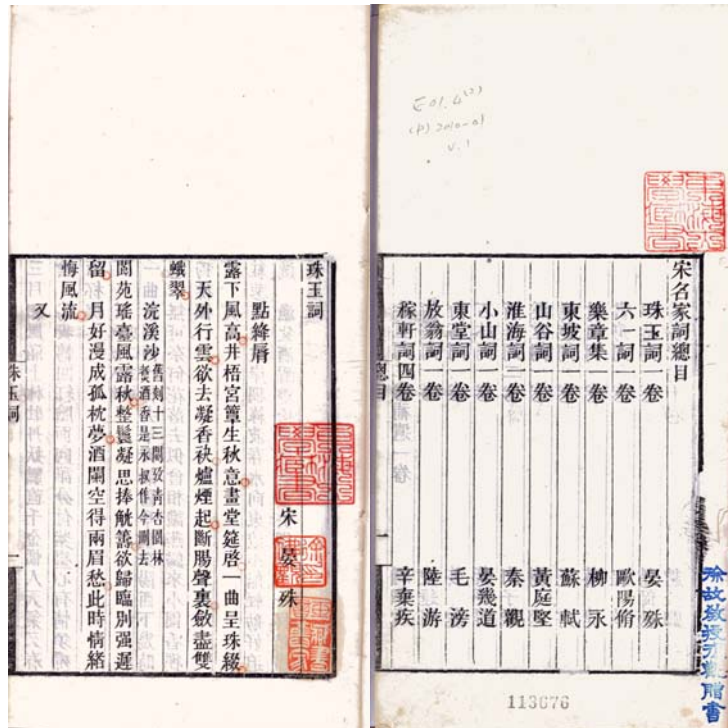 E01.4(2)
(P)2010-01
V.1
宋名家詞總目
珠玉詞一卷 晏殊
六一詞一卷 歐陽脩
樂章集一卷 柳永
東坡詞一卷 蘇軾
山谷詞一卷 黃庭堅
淮海詞一卷 秦觀
小山詞一卷 晏幾道
東堂詞一卷 毛滂
放翁詞一卷 陸游
稼軒詞四卷 辛棄疾
總目
一
113676
珠玉詞
宋 晏殊
點絳唇
露下風高井梧宮簟生秋意畫堂筵啓一曲呈珠綴
天外行雲欲去凝香袂爐煙起斷腸聲裏斂盡雙
蛾翠
浣溪沙 舊刻十三闋攷青杏園林
煑酒香是永叔作今刪去
閬苑瑤臺風露秋整鬟凝思捧觥籌欲歸臨別強遲
留 月好漫成孤枕夢酒闌空得兩眉愁此時情緒
悔風流
又
珠玉詞
一